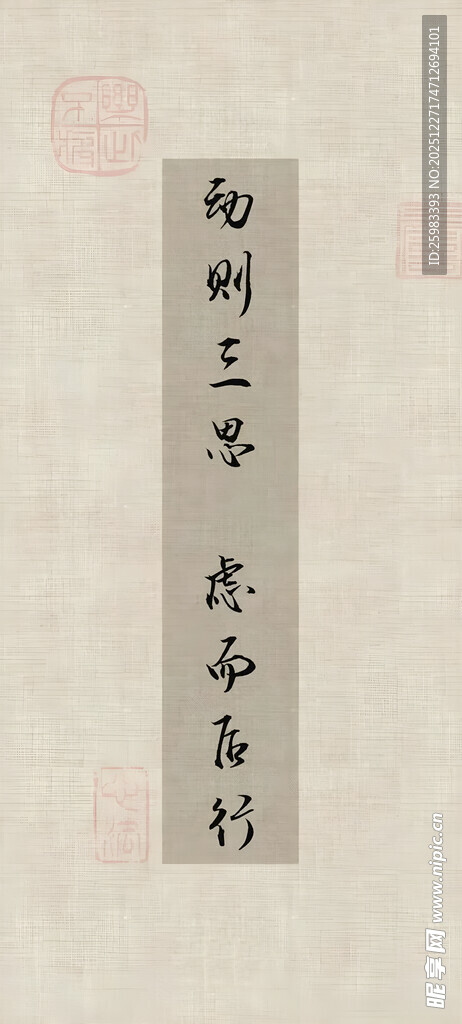 动则三思 虑而后行
ID:25983393 NO:20251227174712694101
昵享网 www.nipic.cn